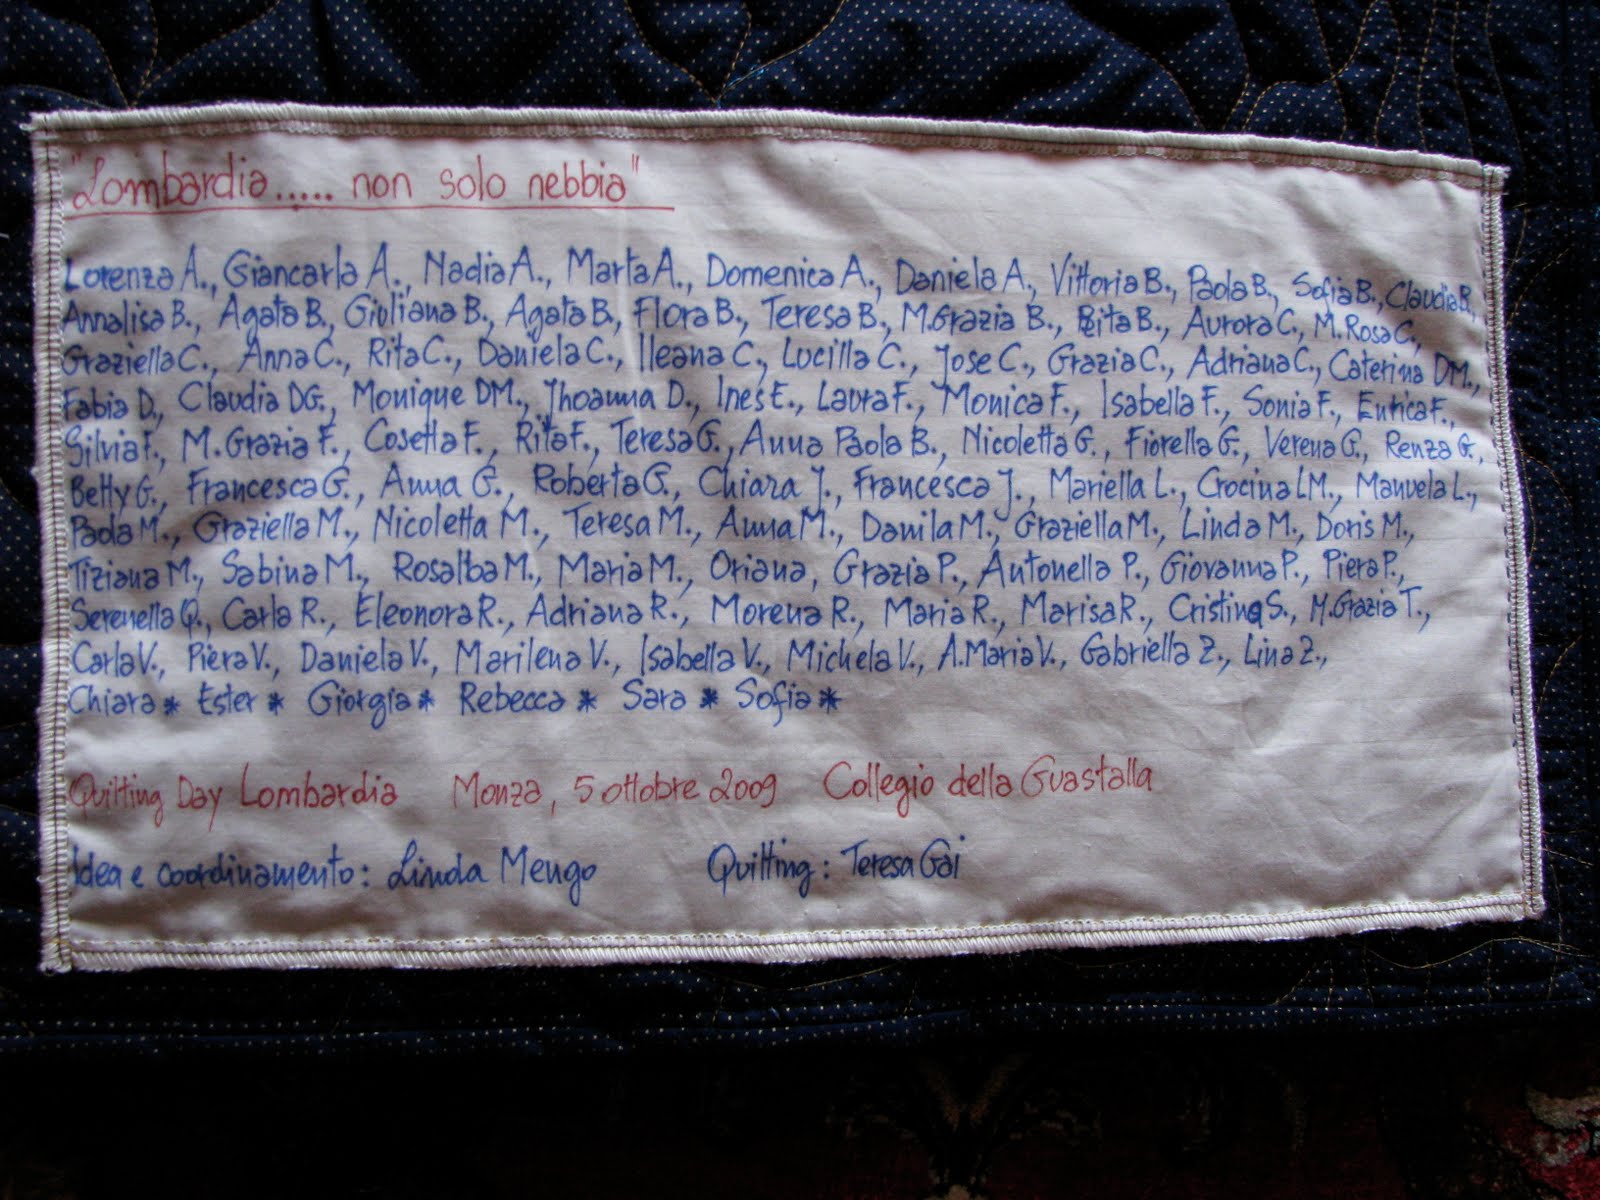 "Lombardia..... non solo nebbia"
Lorenza A., Giancarla A., Nadia A., Marta A., Domenica A., Daniela A., Vittoria B., Paola B., Sofia B., Claudia B.,
Annalisa B., Agata B., Giuliana B., Agata B., Flora B., Teresa B., M.Grazia B., Rita B., Aurora C., M.Rosa C.,
Graziella C., Anna C., Rita C., Daniela C., Ileana C., Lucilla C., Jose C., Grazia C., Adriana C., Caterina DM.,
Fabia D., Claudia DG., Monique DM., Jhoanna D., Ines E., Laura F., Monica F., Isabella F., Sonia F., Enrica F.,
Silvia F., M.Grazia F., Cosetta F., Rita F., Teresa G., Anna Paola B., Nicoletta G., Fiorella G., Verena G., Renza G.,
Betty G., Francesca G., Anna G., Roberta G., Chiara J., Francesca J., Mariella L., Crocina LM., Manuela L.,
Paola M., Graziella M., Nicoletta M., Teresa M., Anna M., Danila M., Graziella M., Linda M., Doris M.,
Tiziana M., Sabina M., Rosalba M., Maria M., Oriana, Grazia P., Antonella P., Giovanna P., Piera P.,
Serenella Q., Carla R., Eleonora R., Adriana R., Morena R., Maria R., Marisa R., Cristina S., M.Grazia T.,
Carla V., Piera V., Daniela V., Marilena V., Isabella V., Michela V., A.Maria V., Gabriella Z., Lina Z.,
Chiara * Ester * Giorgia * Rebecca * Sara * Sofia *
Quilting Day Lombardia Monza, 5 ottobre 2009 Collegio della Guastalla
Idea e coordinamento: Linda Mengo Quilting: Teresa Gai